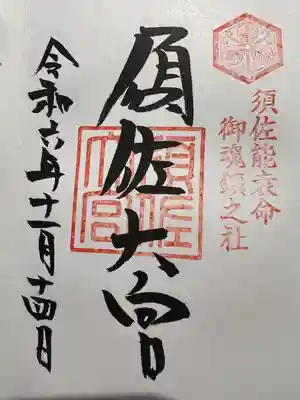 須佐能袁命
御魂鎮之社
須佐大宮
令和六年十一月十四日